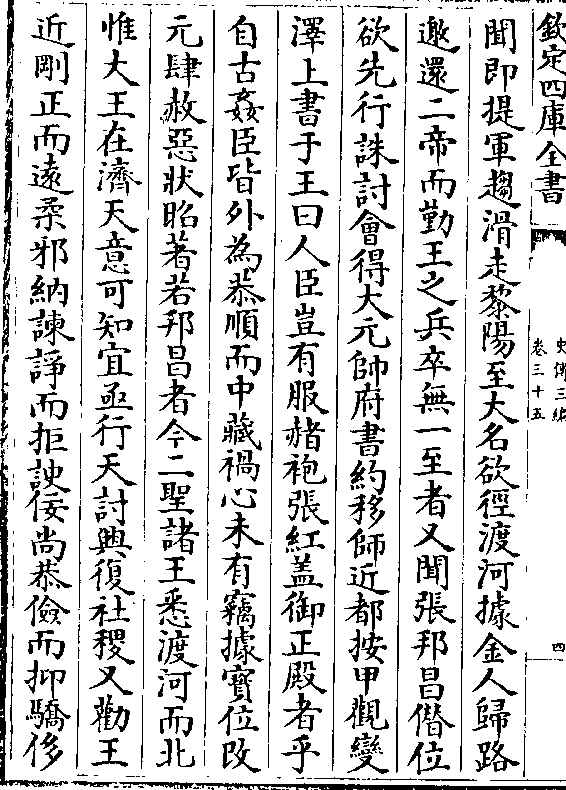 欽定四庫全書
史傳三編
卷三十五
四
聞即提軍趨滑走黎陽至大名欲徑渡河據金人歸路
邀還二帝而勤王之兵卒無一至者又聞張邦昌僭位
欲先行誅討會得大元帥府書約移師近都按甲觀變
澤上書于王曰人臣豈有服赭袍張紅盖御正殿者乎
自古姦臣皆外為恭順而中藏禍心未有竊據寳位改
元肆赦惡狀昭著若邦昌者今二聖諸王悉渡河而北
惟大王在濟天意可知宜亟行天討興復社稷又勸王
近剛正而逺柔邪納諫諍而拒諛佞尚恭儉而抑驕侈